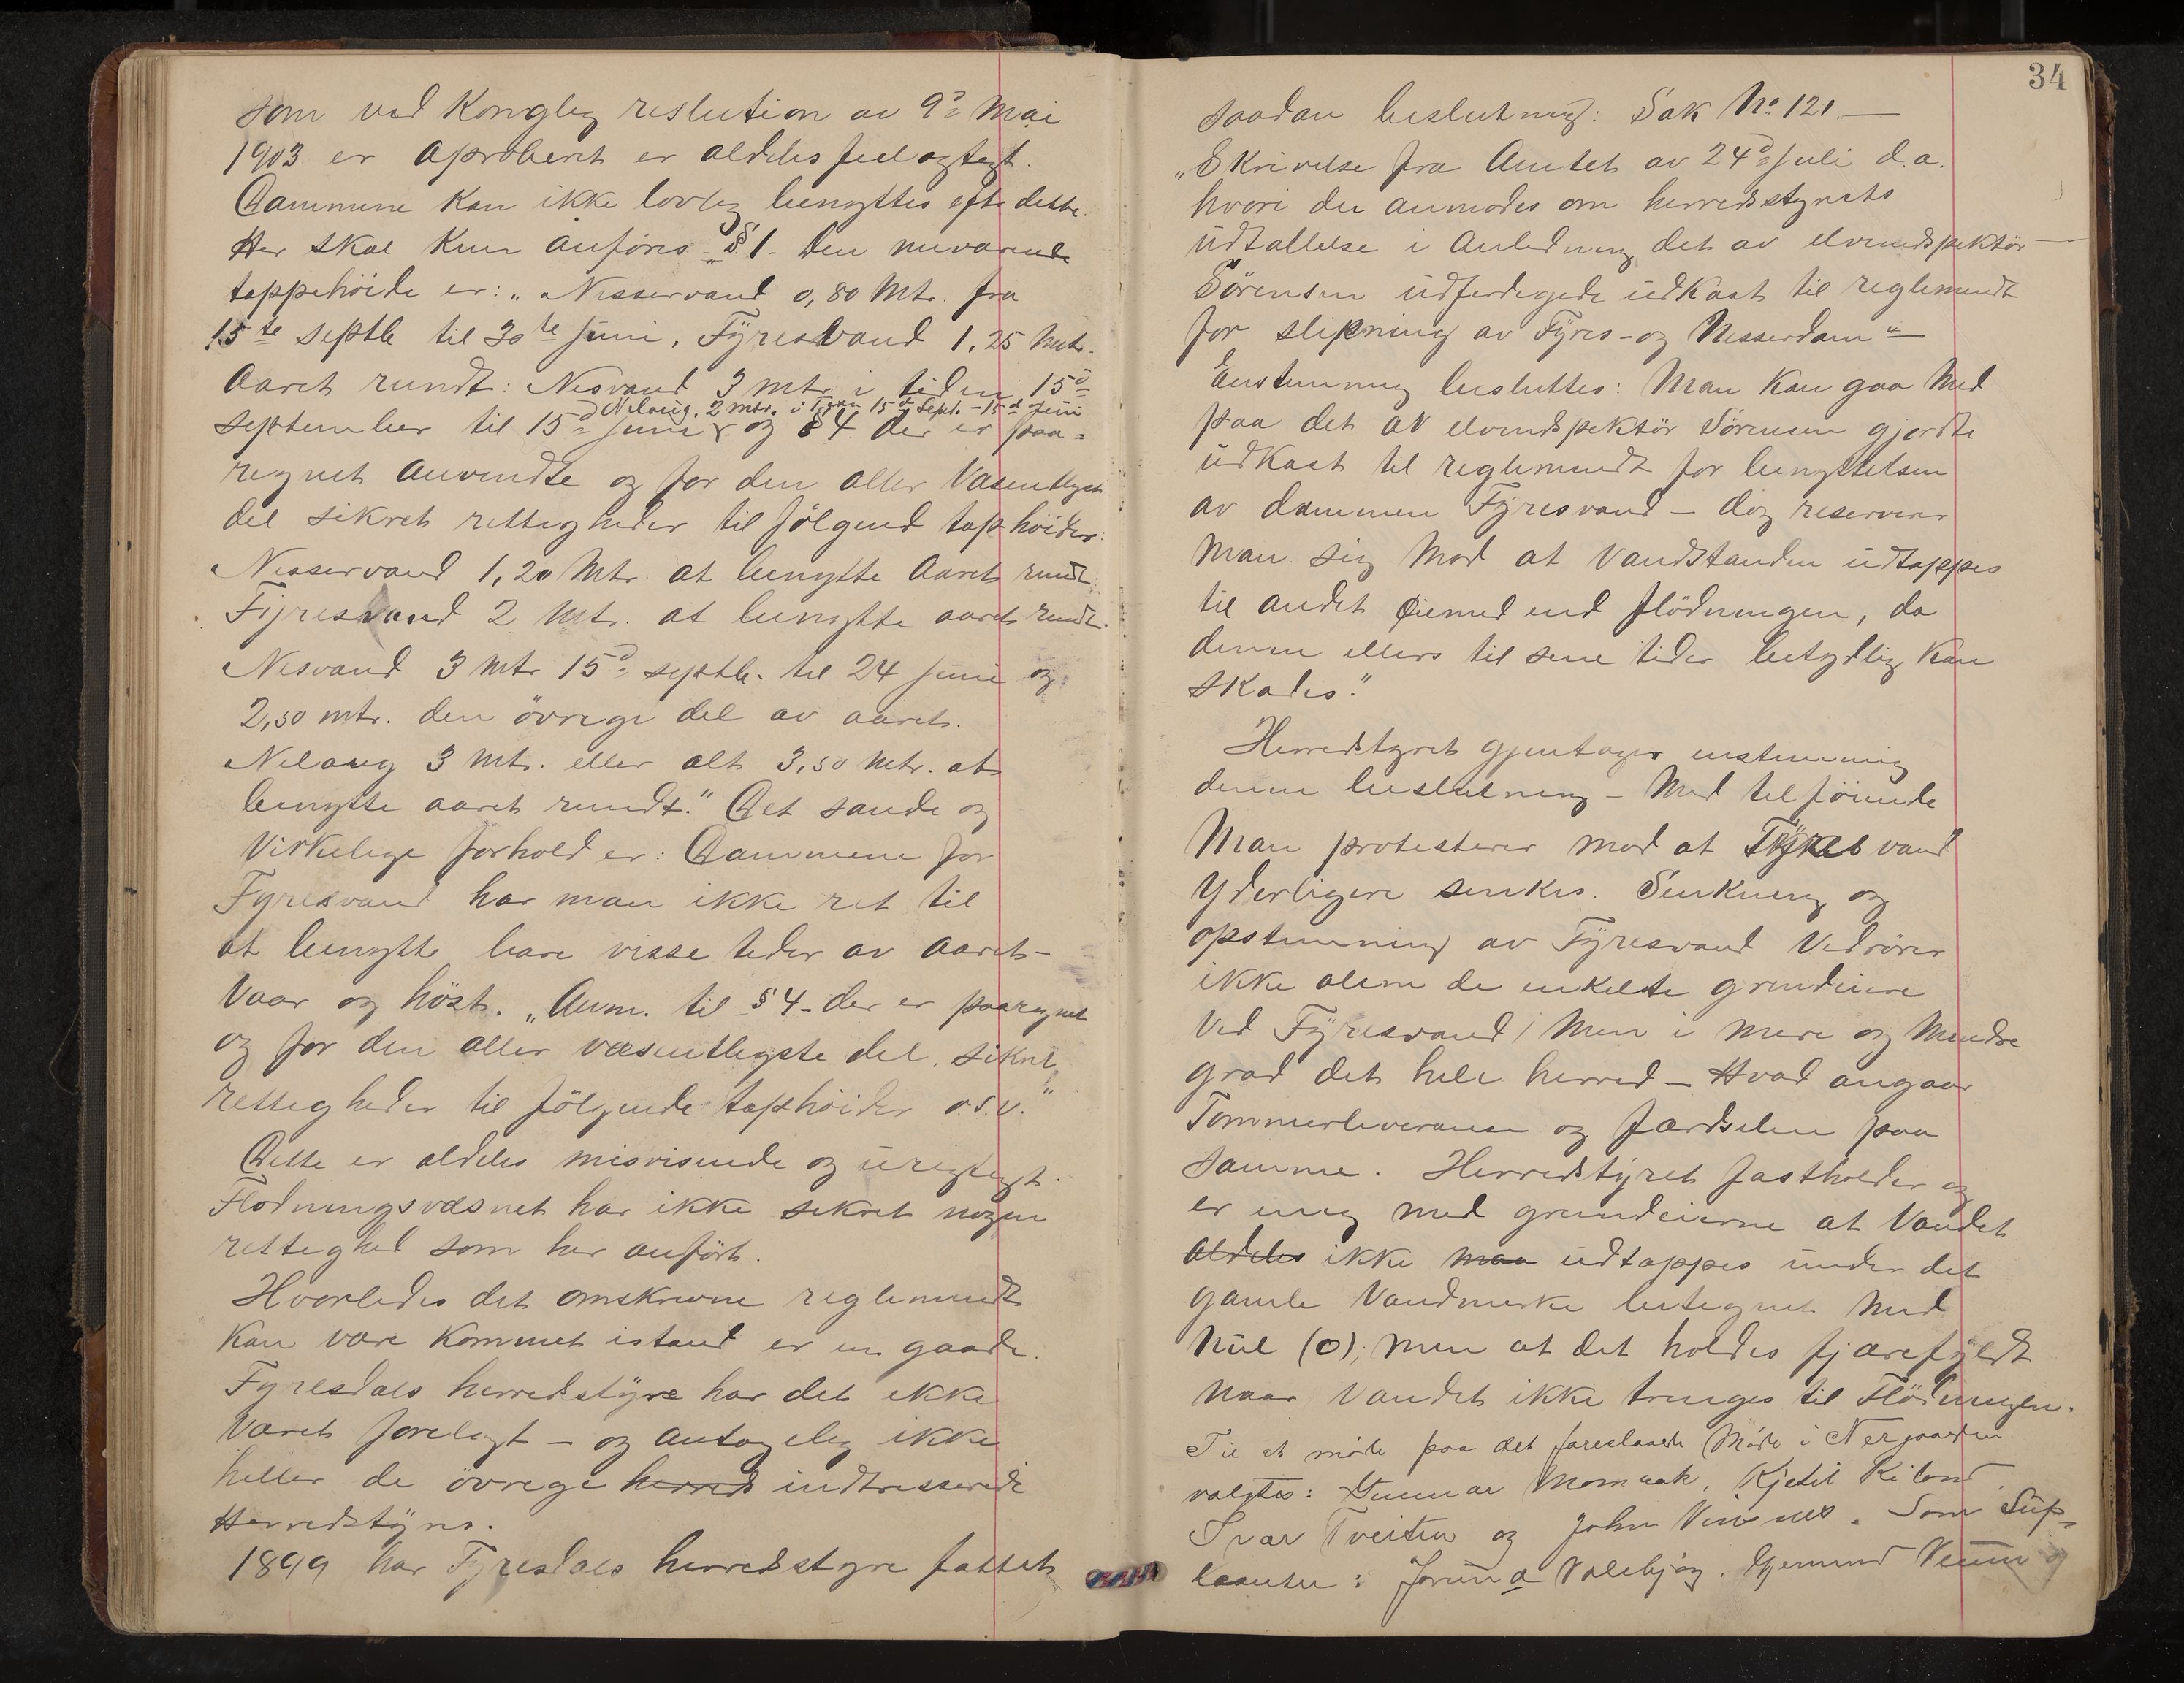 som ved Konglig reslution av 9d Mai
1903 er Aproberet er aldeles feilagtigt.
Dammene Kan ikke lovlig benyttes efte dette.
Her skal Kun anføres „§ 1. Den nuværende
tappehöide er: „Nisservand 0,80 Mtr. fra
15te septbr til 30te Juni, Fyresvand 1,25 Mtr.
Aaret rundt: Nesvand 3 mtr i tiden 15d
Nelaug. 2 mtr. i Tiden 15d Sept. - 15d Juni
september til 15d Juni og § 4 der er paa-
regnet Anvendte og for den aller Væsentligst
del sikret rettigheder til fölgend taphöider:
Nisservand 1,20 Mtr. at benytte Aaret rundt:
Fyresvand 2 Mtr. at benytte aaret rundt.
Nesvand 3 Mtr 15d septbr. til 24 Juni og
2,50 mtr. den övrige del av aaret.
Nelaug 3 Mtr. eller alt 3,50 Mtr. at
benytte aaret rundt." Det sande og
Virkelige forhold er: Dammene for
Fyresvand har man ikke ret til
at benytte bare visse tider av Aaret-
Vaar og höst. „Anm. til § 4 - der er paaregnet
og for den aller væsentligste del, sikret
rettigheder til fölgende taphöider o.s.v."
Dette er aldeles misvisende og urigtigt.
Flodningsvæsnet har ikke sikret nogen
rettighed som her anfört.
Hvorledes det omskrevne reglemendt
Kan være Kommet istand er en gaade.
Fyresdals herredstyre har det ikke
Været forelagt - og antagelig ikke
heller de övrige herred indtresserede
Herredstyrer.
1899 har Fyresdals herredstyre fattet
34
saadan beslutning: Sak No 121.—
„Skrivelse fra Amtet av 24d Juli d.a.
hvori der anmodes om herredsstyrets
udtallelse i Anledning det av elvendspektör
Sörensen udferdigede udkast til reglemendt
for slipning av Fyres- og Nisserdam"—
Enstemmig besluttes: Man Kan gaa Med
paa det av elvendspektör Sörensen gjordte
udkast til reglemendt for benyttelsen
av dammen Fyresvand - dog reserverer
man sig Mod at Vandstanden udtappes
til andet Øiemed end flödningen, da
denne ellers til sine tider betydlig Kan
skades."
Herredstyret gjentager enstemmig
denne beslutning - Med tilföiende
Man protesterer mod at Fyresvand
Yderligere senkes. Senkning og
opstemning av Fyresvand Vedrörer
ikke alene de enkelte grundeiere
Ved Fyresvand, Men i mere og Mindre
grad det hele herred - Hvad angaar
Tømmerleverance og færdselen paa
samme. Herredstyret fastholder og
er enig med grundeierne at Vandet
aldeles ikke maa udtappes under det
gamle Vandmerke betegnet Med
Nul (0); men at det holdes fjærefyldt
naar Vandet ikke trenges til Flödningen.
Til at møde paa det foreslaaede Möde i
valgtes: Gunnar Momrak, Kjetil Kiland,
Ivar Tveiten og John Veisnes. Som Sup-
leanter: Jorund Valebjög. Gjermund Veum og